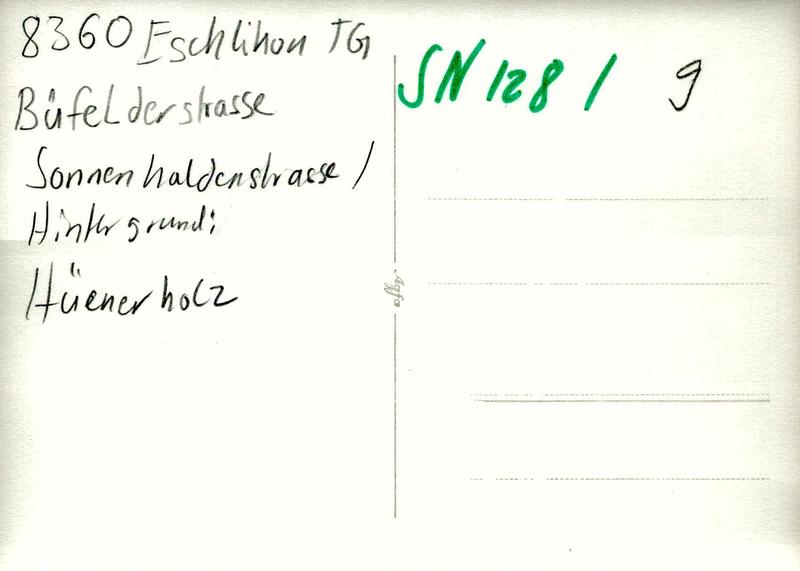 8360 Eschlikon TG
Büfelderstrasse
Sonnenhaldenstrasse /
Hintergrund:
Hüenerholz
SN 128 / 9
Agfa